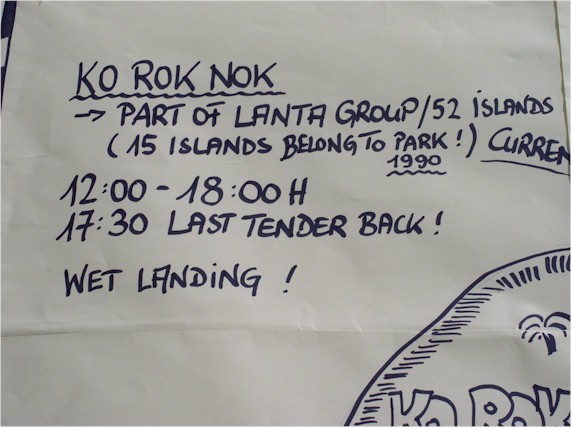 KO ROK NOK
→ PART OF LANTA GROUP/52 ISLANDS
(15 ISLANDS BELONG TO PARK!)
1990
12:00 - 18:00 H
17:30 LAST TENDER BACK!
WET LANDING !
KO ROK